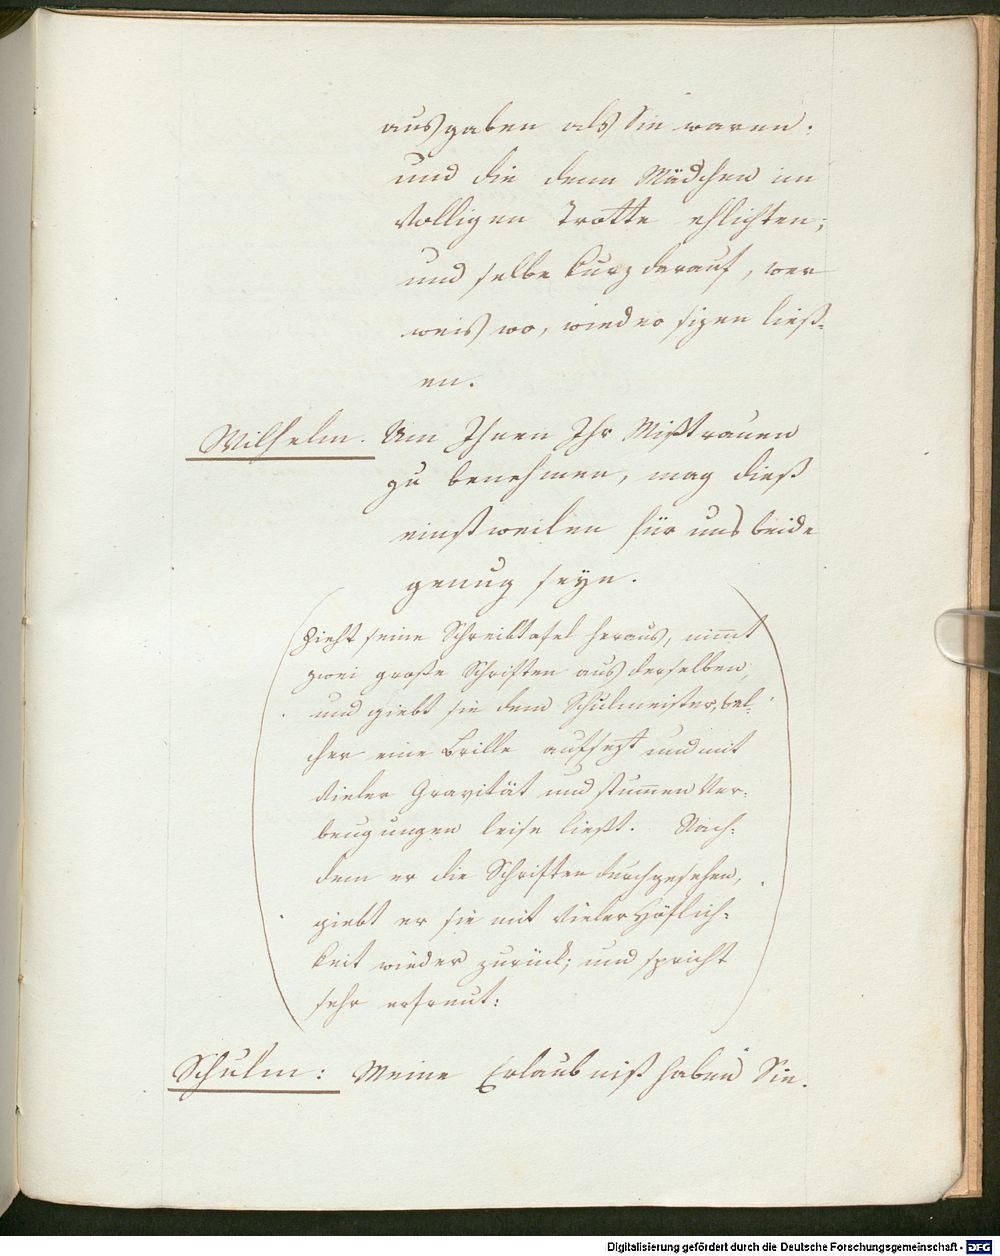 ausgaben als Sie waren.
und die denn Mädchen im
volligen Trotte ehlichten;
und selbe kurz darauf, wer
weis wo, wieder sizen ließ-
en.
Wilhelm. Um Ihnen Ihr Mißtrauen
zu benehmen, mag dieß
einstweilen für uns beide
genug seyn.
(Zieht seine Schreibtafel heraus, nimmt
zwei große Schriften aus derselben,
und giebt sie dem Schulmeister, wel-
cher eine Brille aufsezt und mit
vieler Gravität und stummen Ver-
beugungen leise ließt. Nach-
dem er die Schriften durchgesehen,
giebt er sie mit vieler Höflich-
keit wieder zurück; und spricht
sehr erfreut:)
Schulm: Meine Erlaubniß haben Sie.
Digitalisierung gefördert durch die Deutsche Forschungsgemeinschaft - DFG